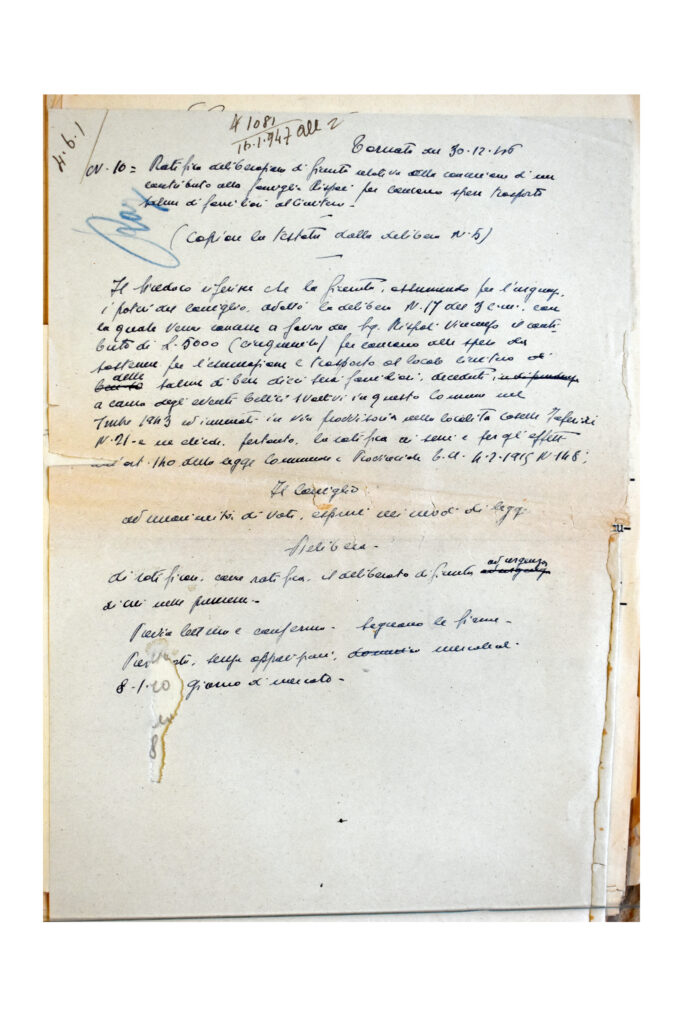 4.6.1
4 1081
16.1.947 all 2
Tornata del 30-12-46
N. 10 = Ratifica deliberazione di Giunta relativa alla concessione di un
contributo alla famiglia Rispoli per concorso spese trasporto
salme di familiari al Cimitero. -
(Copiare la testata dalla delibera N. 5)
Il Sindaco riferisce che la Giunta, assumendo per l'urgenza,
i poteri del Consiglio, adottò la delibera N. 17 del 3 c.m., con
la quale venne concesso a favore del Sig. Rispoli Vincenzo il contri-
buto di L. 5000 (cinquemila) per concorso alle spese da
sostenere per l'esumazione e trasporto al locale cimitero di
delle salme di ben dieci suoi familiari, deceduti
a causa degli eventi bellici svoltisi in questo Comune nel
1943 ed inumati in via provvisoria nella località
N. 21 - e ne chiede, pertanto, la ratifica ai sensi e per gli effetti
dell'art. 140 della legge Comunale e Provinciale 4-2-1915 N. 148;
Il Consiglio
ad unanimità di voti, espressi nei modi di legge
Delibera -
di ratificare, come ratifica, il deliberato di Giunta ad urgenza
di cui nelle premesse. -
Previa lettura e conferma - Seguono le firme -
senza opposizioni, mercoledì
8-1- giorno di mercato -